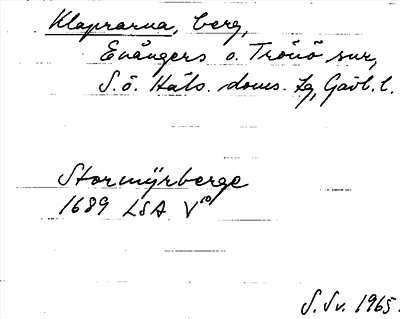 Klaprarna, berg,
Enångers o. Trönö snr,
S. ö. Häls. doms. lg, Gävl. l.
Stormyrberge
1689 LSA V¹⁰
S. Sv. 1965.